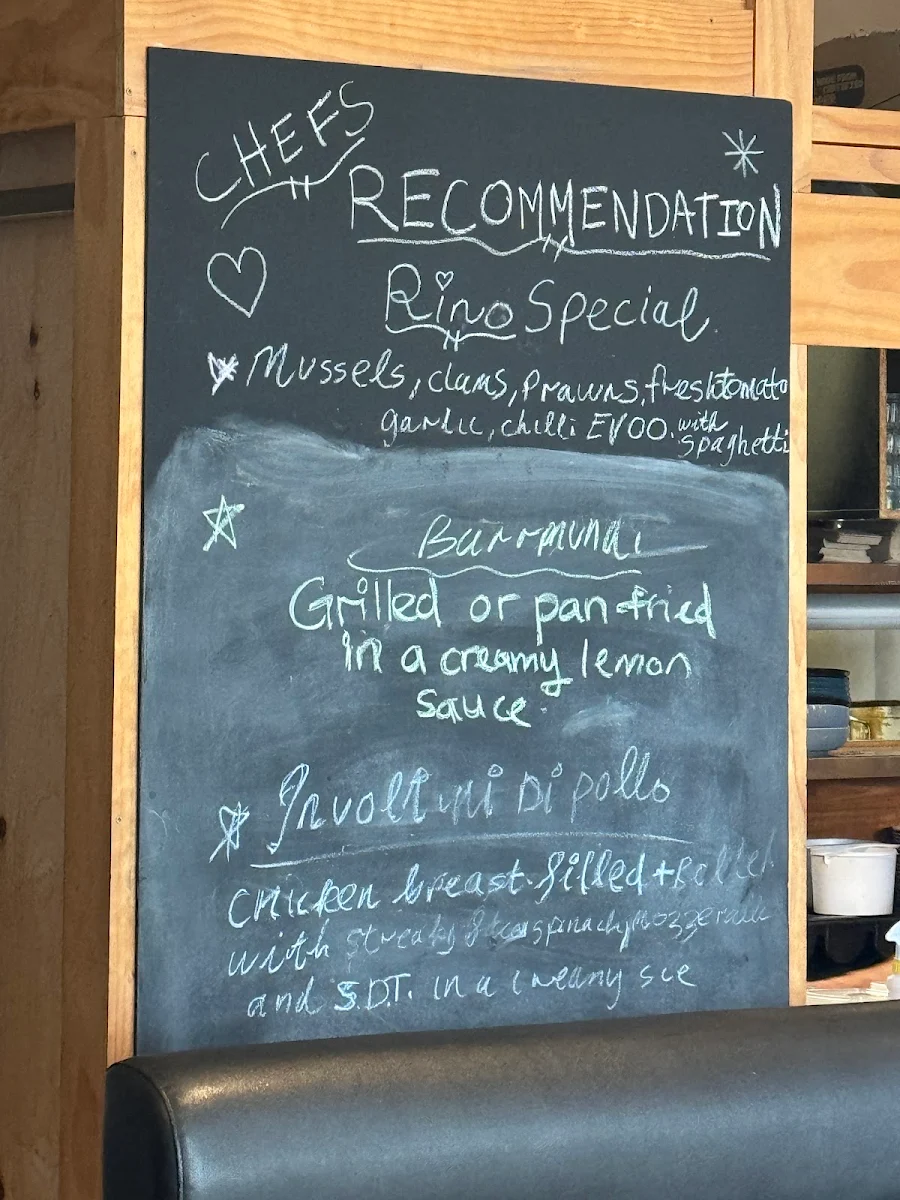 CHEFS
RECOMMENDATION
Rino Special.
Mussels, clams, Prawns, fresh tomato
garlic, chilli EVOO. with
spaghetti
Barramundi
Grilled or pan-fried
in a creamy lemon
sauce.
Involtini Di pollo
chicken breast filled + Rolled
with spinach, mozzerella
and S.D.T. in a creamy sce